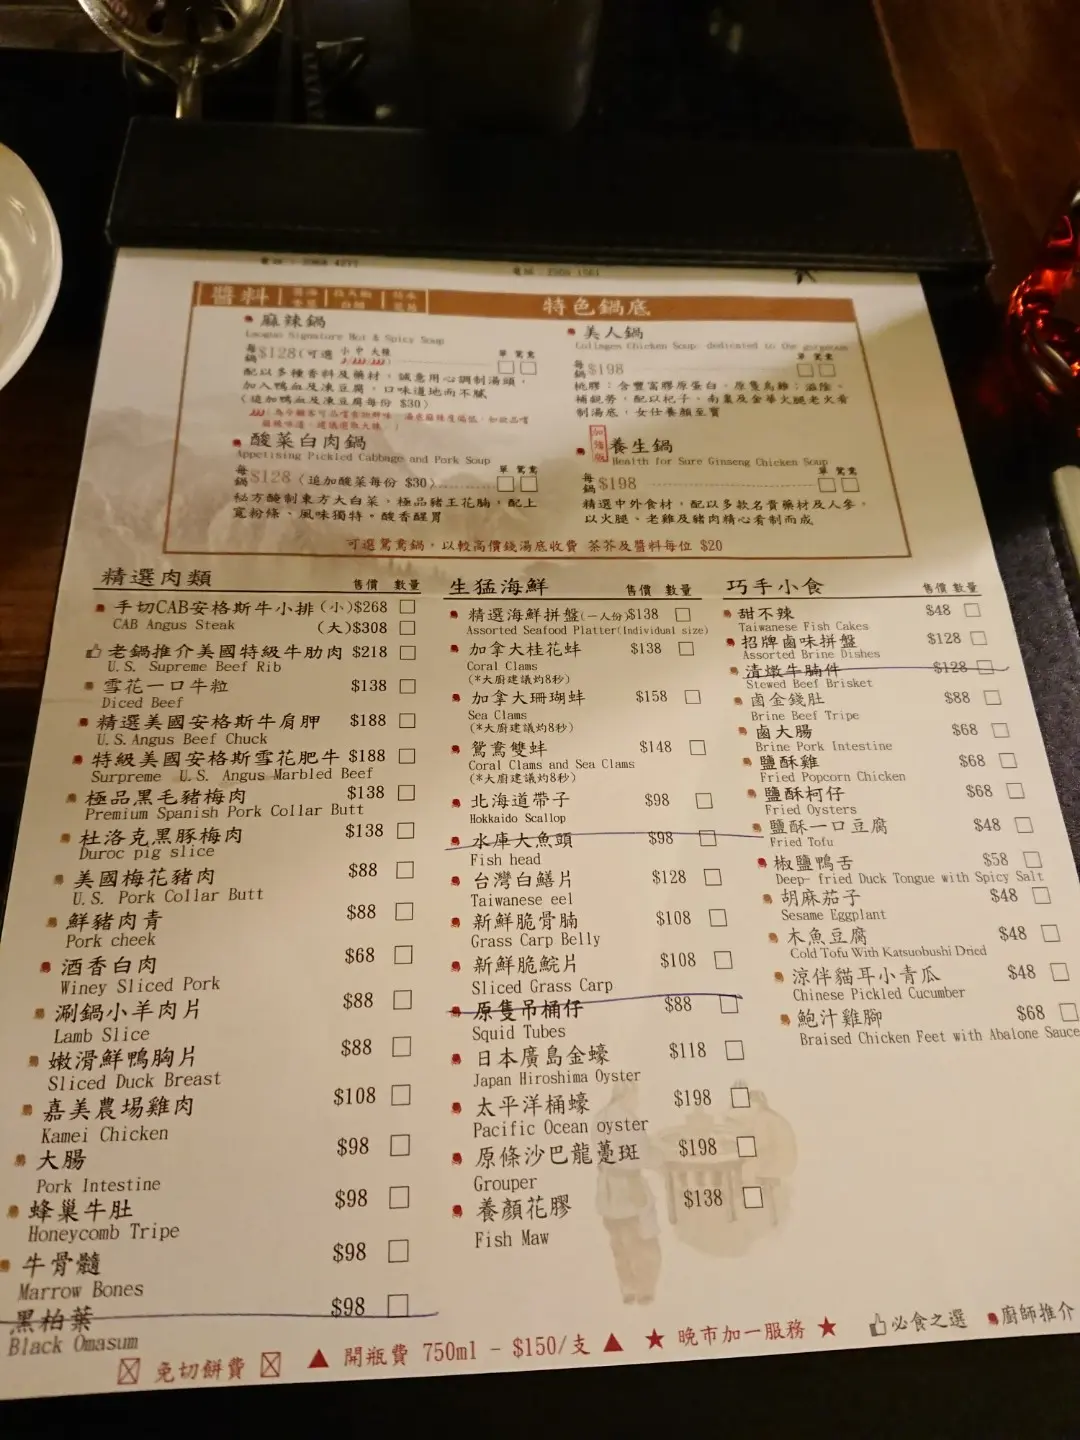 醬料
特色鍋底
麻辣鍋
Laoguo Signature Hot & Spicy Soup
每鍋 $128 (可選 小 中 大辣
單 鴛鴦
配以多種香料及藥材，誠意用心調制湯頭，
加入鴨血及凍豆腐，口味道地而不膩
(追加鴨血及凍豆腐每份 $30)
美人鍋
Collagen Chicken Soup dedicated to the gorgeous
每鍋 $198
單 鴛鴦
桃膠：含豐富膠原蛋白，原隻烏雞：滋陰，
補虧勞，配以杞子、南棗及金華火腿老火肴
制湯底，女仕養顏至寶
酸菜白肉鍋
Appetising Pickled Cabbage and Pork Soup
每鍋 $128 (追加酸菜每份 $30)
單 鴛鴦
秘方醃制東方大白菜，極品豬王花腩，配上
寬粉條、風味獨特。酸香醒胃
養生鍋
Health for Sure Ginseng Chicken Soup
每鍋 $198
單 鴛鴦
精選中外食材，配以多款名貴藥材及人參，
以火腿、老雞及豬肉精心肴制而成
可選鴛鴦鍋，以較高價錢湯底收費 茶芥及醬料每位 $20
精選肉類 售價 數量
手切CAB安格斯牛小排 (小)$268
CAB Angus Steak (大)$308
老鍋推介美國特級牛肋肉 $218
U.S. Supreme Beef Rib
雪花一口牛粒 $138
Diced Beef
精選美國安格斯牛肩胛 $188
U.S.Angus Beef Chuck
特級美國安格斯雪花肥牛 $188
Surpreme U.S. Angus Marbled Beef
極品黑毛豬梅肉 $138
Premium Spanish Pork Collar Butt
杜洛克黑豚梅肉 $138
Duroc pig slice
美國梅花豬肉 $88
U.S. Pork Collar Butt
鮮豬肉青 $88
Pork cheek
酒香白肉 $68
Winey Sliced Pork
涮鍋小羊肉片 $88
Lamb Slice
嫩滑鮮鴨胸片 $88
Sliced Duck Breast
嘉美農場雞肉 $108
Kamei Chicken
大腸 $98
Pork Intestine
蜂巢牛肚 $98
Honeycomb Tripe
牛骨髓 $98
Marrow Bones
黑柏葉 $98
Black Omasum
生猛海鮮 售價 數量
精選海鮮拼盤(一人份)$138
Assorted Seafood Platter(Individual size)
加拿大桂花蚌 $138
Coral Clams
(*大廚建議灼8秒)
加拿大珊瑚蚌 $158
Sea Clams
(*大廚建議灼8秒)
鴛鴦雙蚌 $148
Coral Clams and Sea Clams
(*大廚建議灼8秒)
北海道帶子 $98
Hokkaido Scallop
水庫大魚頭 $98
Fish head
台灣白鱔片 $128
Taiwanese eel
新鮮脆骨腩 $108
Grass Carp Belly
新鮮脆鯇片 $108
Sliced Grass Carp
原隻吊桶仔 $88
Squid Tubes
日本廣島金蠔 $118
Japan Hiroshima Oyster
太平洋桶蠔 $198
Pacific Ocean oyster
原條沙巴龍躉斑 $198
Grouper
養顏花膠 $138
Fish Maw
巧手小食 售價 數量
甜不辣 $48
Taiwanese Fish Cakes
招牌鹵味拼盤 $128
Assorted Brine Dishes
清燉牛腩件 $128
Stewed Beef Brisket
鹵金錢肚 $88
Brine Beef Tripe
鹵大腸 $68
Brine Pork Intestine
鹽酥雞 $68
Fried Popcorn Chicken
鹽酥柯仔 $68
Fried Oysters
鹽酥一口豆腐 $48
Fried Tofu
椒鹽鴨舌 $58
Deep- fried Duck Tongue with Spicy Salt
胡麻茄子 $48
Sesame Eggplant
木魚豆腐 $48
Cold Tofu With Katsuobushi Dried
涼伴貓耳小青瓜 $48
Chinese Pickled Cucumber
鮑汁雞腳 $68
Braised Chicken Feet with Abalone Sauce
免切餅費 ▲ 開瓶費 750ml - $150/支 ▲ ★ 晚市加一服務 ★ 必食之選 廚師推介